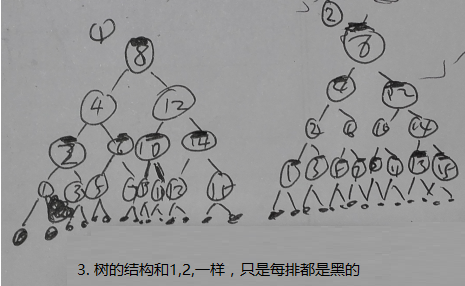 ①
8
4 12
2 6 10 14
1 3 5 13 15
②
8
4 12
2 10 14
1 3 13 15
3. 树的结构和1,2,一样，只是每排都是黑的